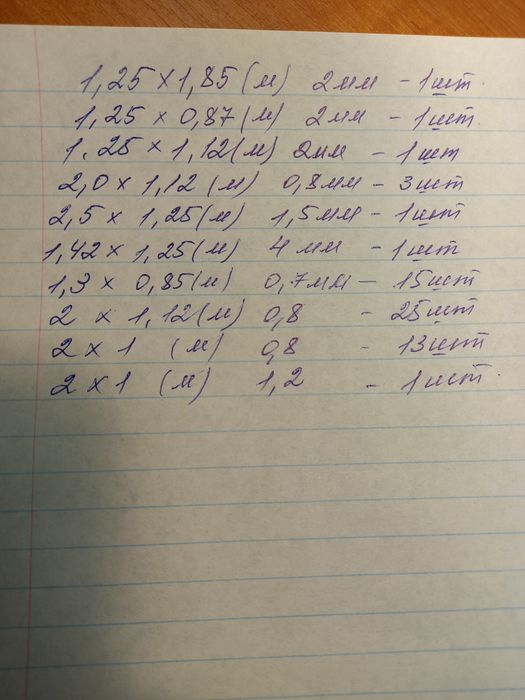 1,25 x 1,85 (м) 2мм - 1шт.
1,25 x 0,87 (м) 2мм - 1шт.
1.25 x 1,12 (м) 2мм - 1шт
2,0 x 1,12 (м) 0,8мм - 3шт
2,5 x 1,25 (м) 1,5мм - 1шт
1,42 x 1,25 (м) 4 мм - 1шт
1,3 x 0,85 (м) 0,7мм - 15шт
2 x 1,12 (м) 0,8 - 25шт
2 x 1 (м) 0,8 - 13шт
2 x 1 (м) 1,2 - 1шт.